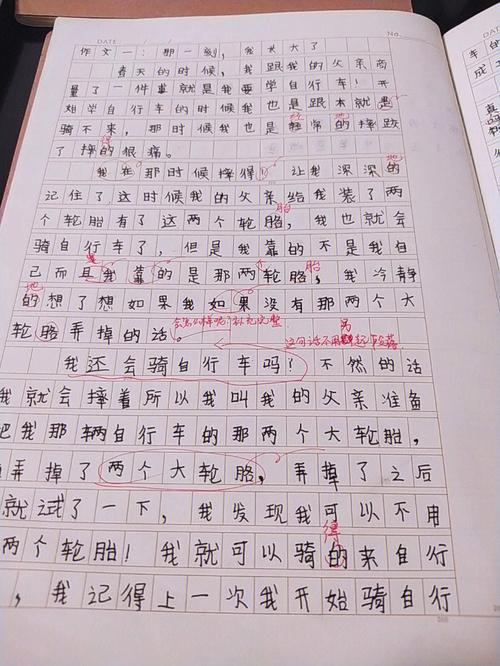 DATE No.
作文一：那一刻，我长大了
春天的时候，我跟我的父亲商
量了一件事就是我要学自行车！开
始学自行车的时候我也是跟本就
骑不来，那时候我也是经常的摔跤
地
了摔的很痛。
得
我在那时候摔得 让我深深的
地
记住了这时候我的父亲给我装了两
个轮胎有了这两个轮胎，我也就会
胎
骑自行车了，但是我靠的不是我自
己而且我靠的是那两轮胎，我冷静
是 胎
的想了想如果我如果没有那两个大
地
轮胎弄掉的话。
会怎么样呢？补充完整
另
这句话不用起段落
我还会骑自行车吗？不然的话
我就会摔着所以我叫我的父亲准备
把我那辆自行车的那两个大轮胎，
弄掉了两个大轮胎，弄掉了之后
就试了一下，我发现我可以不用
两个轮胎！我就可以骑的来自行
得
，我记得上一次我开始骑自行